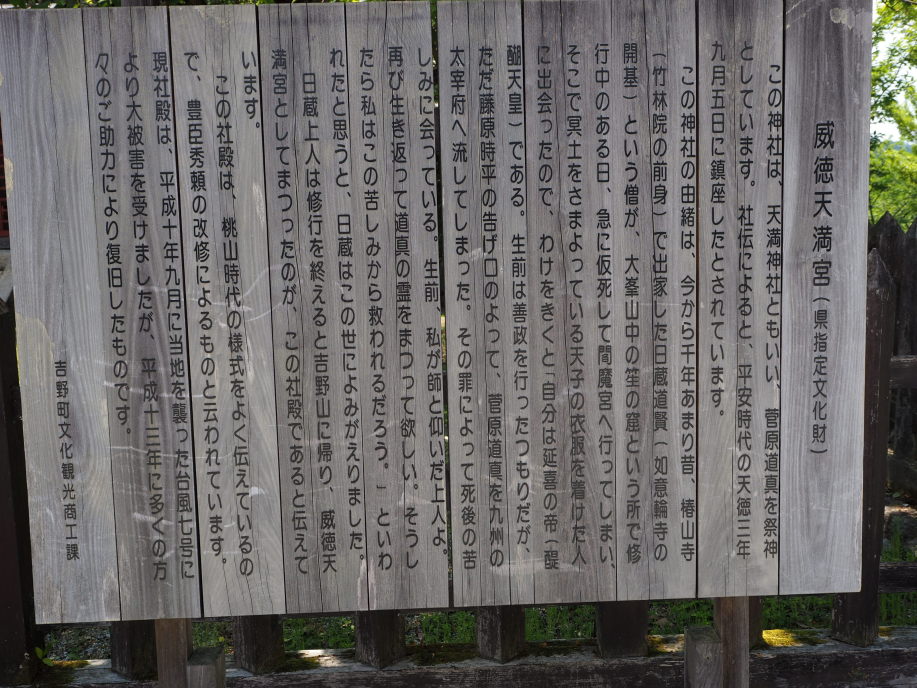 威徳天満宮(県指定文化財)
この神社は、天満神社ともいい、菅原道真を祭神
としています。社伝によると、平安時代の天徳三年
九月五日に鎮座したとされています。
この神社の由緒は、今から千年あまり昔、椿山寺
(竹林院の前身)で出家した日蔵道賢(如意輪寺の
開基)という僧が、大峯山中の笙の窟という所で修
行中のある日、急に仮死して閻魔宮へ行ってしまい、
そこで冥土をさまよっている天子の衣服を着けた人
に出会ったので、わけをきくと「自分は延喜の帝(醍
醐天皇)である。生前は善政を行ったつもりだが、
ただ藤原時平の告げ口のよって、菅原道真を九州の
太宰府へ流してしまった。その罪によって死後の苦
しみに会っている。生前、私が師と仰いだ上人よ。
再び生き返って道真の霊をまつって欲しい。そうし
たら私はこの苦しみから救われるだろう。」といわ
れたと思うと、日蔵はこの世によみがえりました。
日蔵上人は修行を終えると吉野山に帰り、威徳天
満宮としてまつったのが、この社殿であると伝えて
います。
この社殿は、桃山時代の様式をよく伝えているの
で、豊臣秀頼の改修によるものと云われています。
現社殿は、平成十年九月に当地を襲った台風七号に
より大被害を受けましたが、平成十三年に多くの方
々のご助力により復旧したものです。
吉野町文化観光商工課